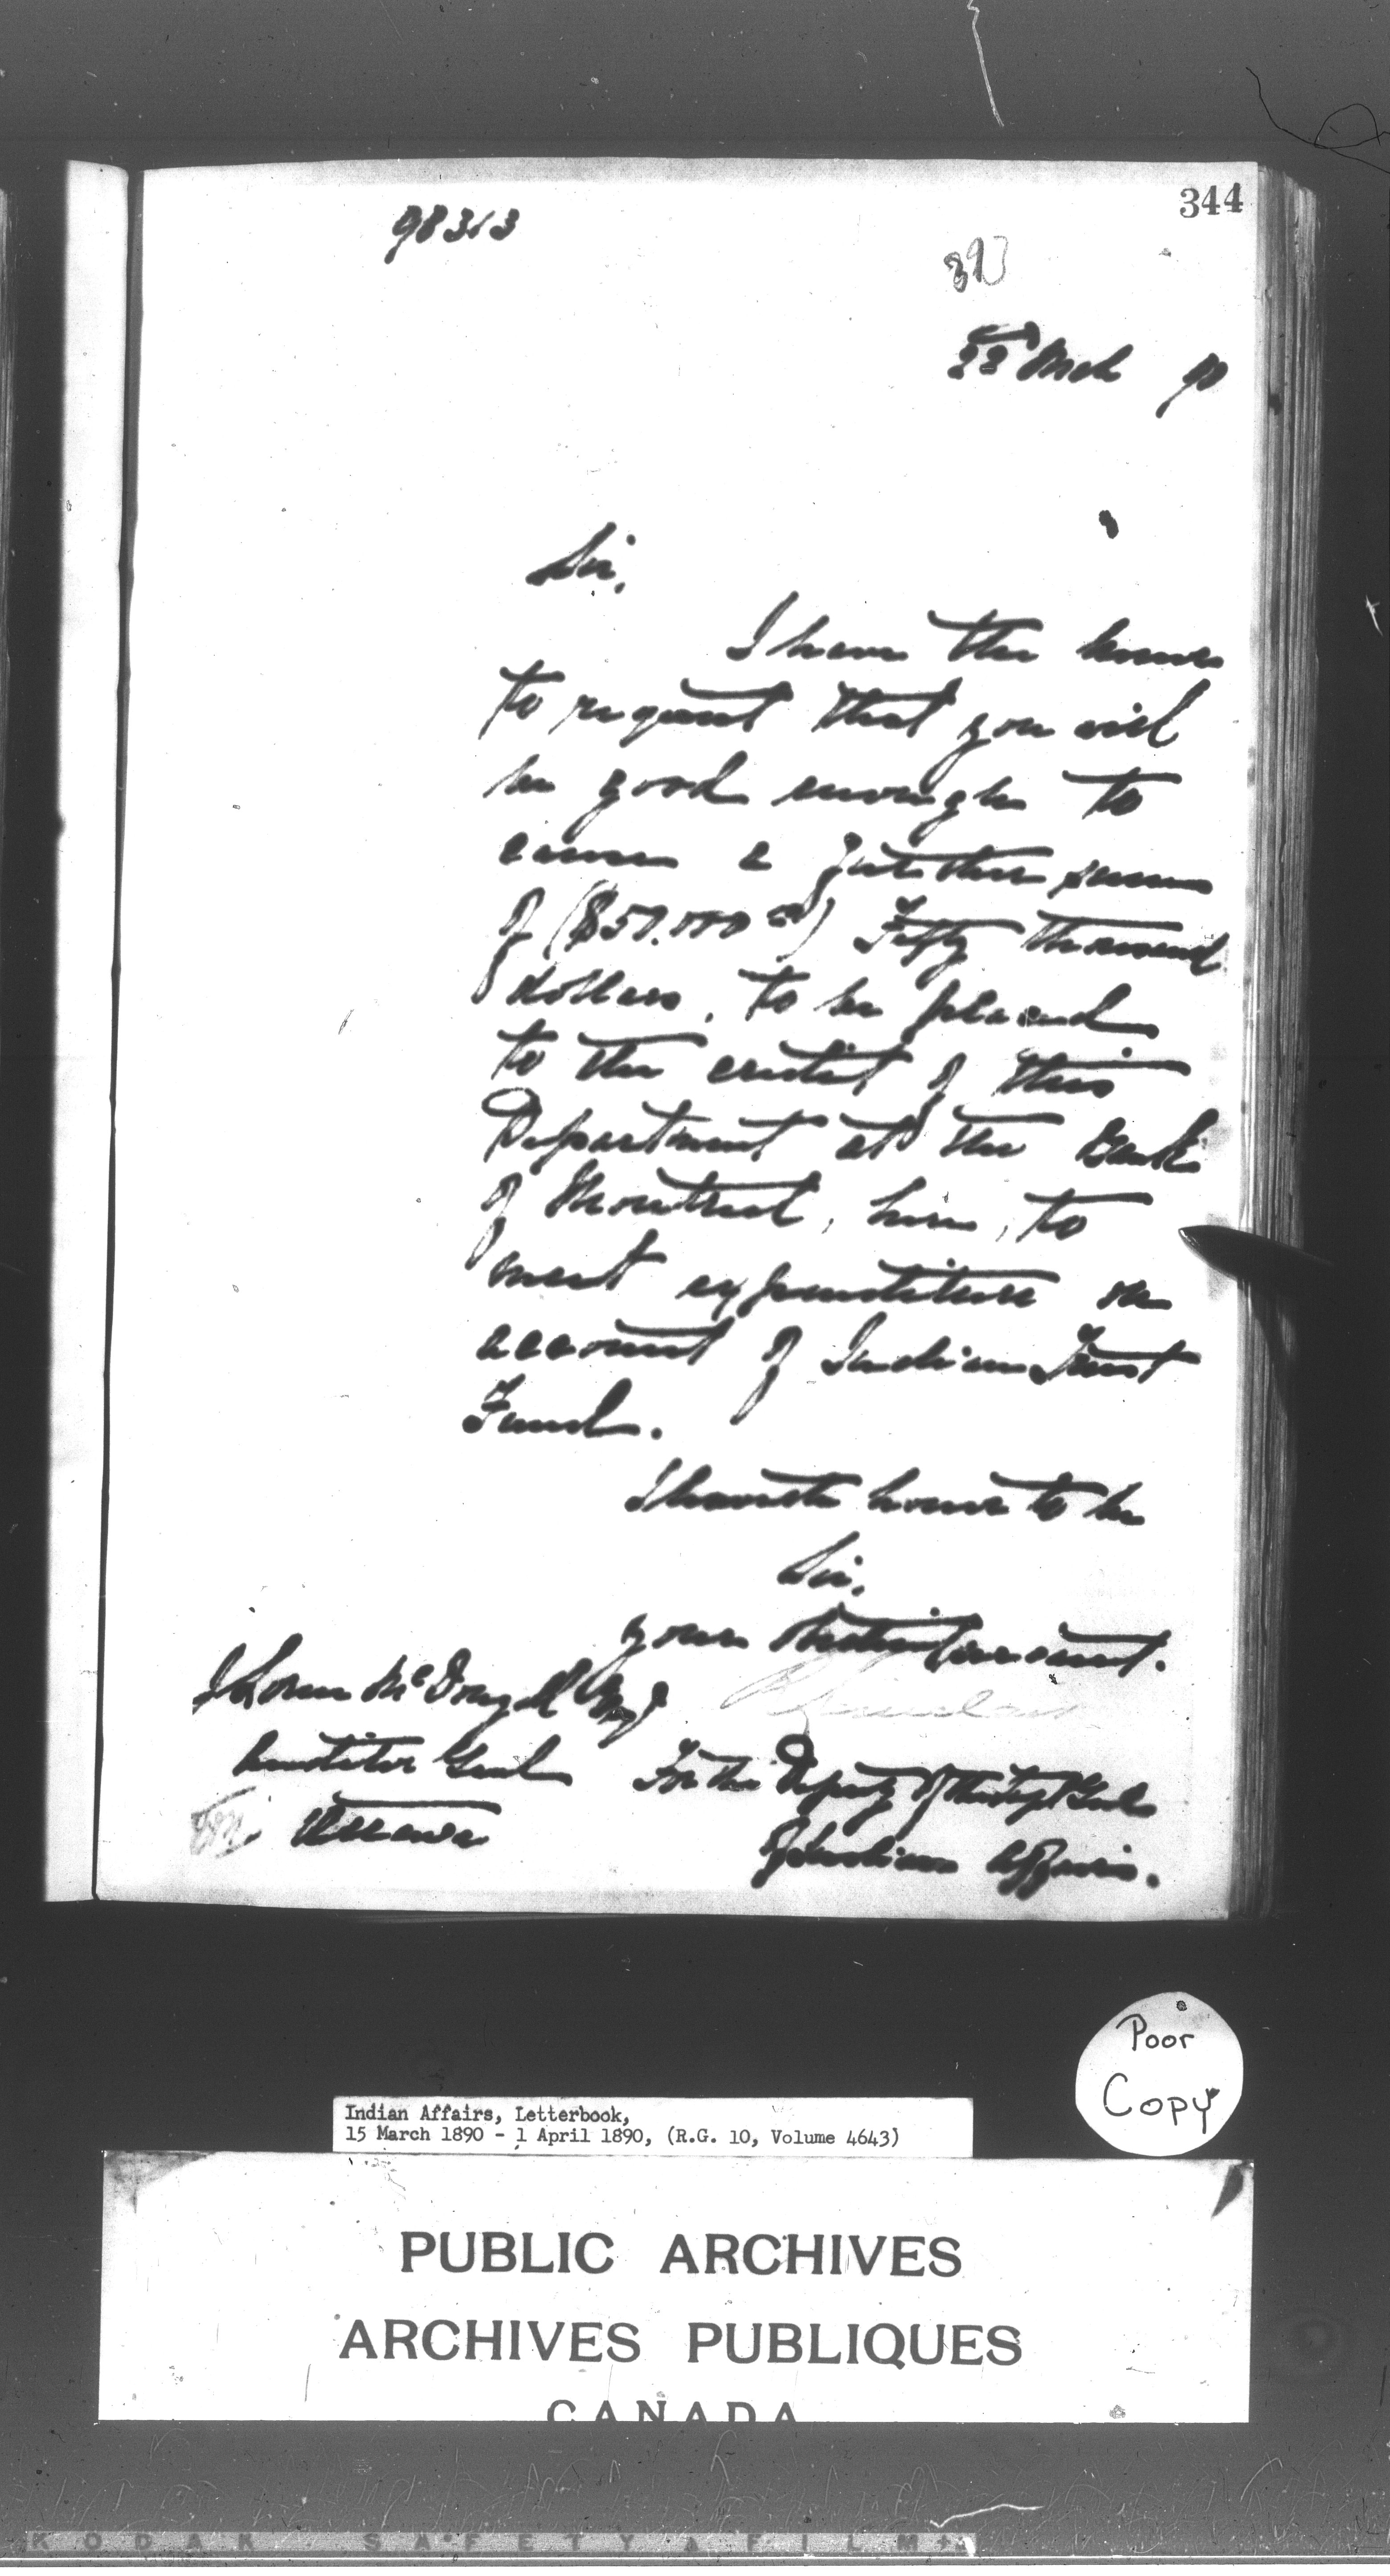 344
98313
22nd Mch 90
Sir,
I have the honor
to request that you will
be good enough to
cause a further sum
of ($50.000 00) Fifty thousand
dollars, to be placed
to the credit of this
Department at the Bank
of Montreal, here, to
meet expenditure on
account of Indian Trust
Fund.
I have the honor to be
Sir,
your obedient servant.
R Sinclair
For the Deputy of the Supt Genl
of Indian Affairs.
J Lorne McDougall Esq
Auditor Genl
Ottawa
Poor
Copy
Indian Affairs, Letterbook,
15 March 1890 - 1 April 1890, (R.G. 10, Volume 4643)
PUBLIC ARCHIVES
ARCHIVES PUBLIQUES
CANADA
KODAK SAFETY FILM